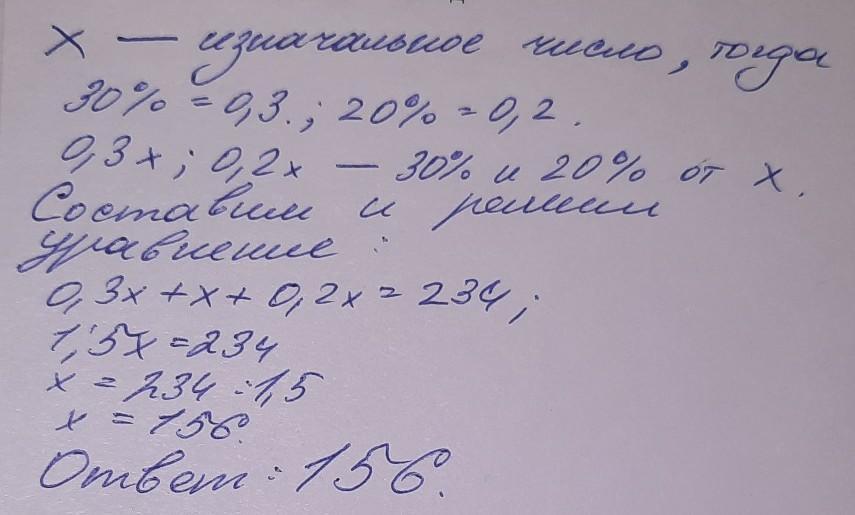 x — изначальное число, тогда
30% = 0,3.; 20% = 0,2.
0,3x; 0,2x — 30% и 20% от x.
Составим и решим
уравнение:
0,3x + x + 0,2x = 234;
1,5x = 234
x = 234 : 1,5
x = 156.
Ответ: 156.